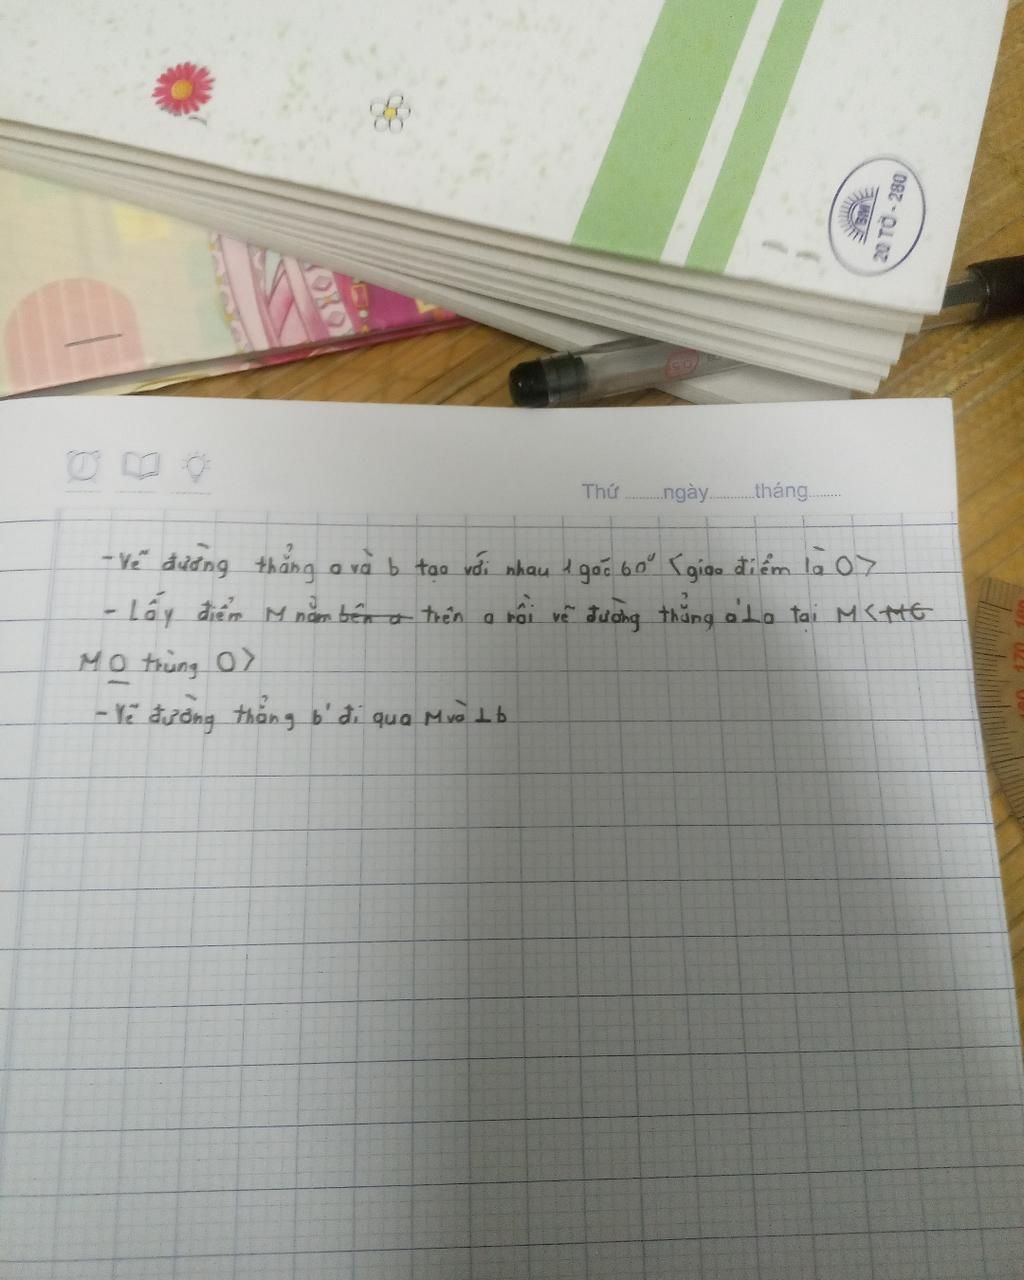 BIM
20 TỜ - 280
Thứ ........ngày..........tháng.......
- Vẽ đường thẳng a và b tạo với nhau 1 góc 60° <giao điểm là O>
- Lấy điểm M nằm bên a trên a rồi vẽ đường thẳng a'⊥a tại M <MC
M O trùng O>
- Vẽ đường thẳng b' đi qua M và ⊥b
170
160